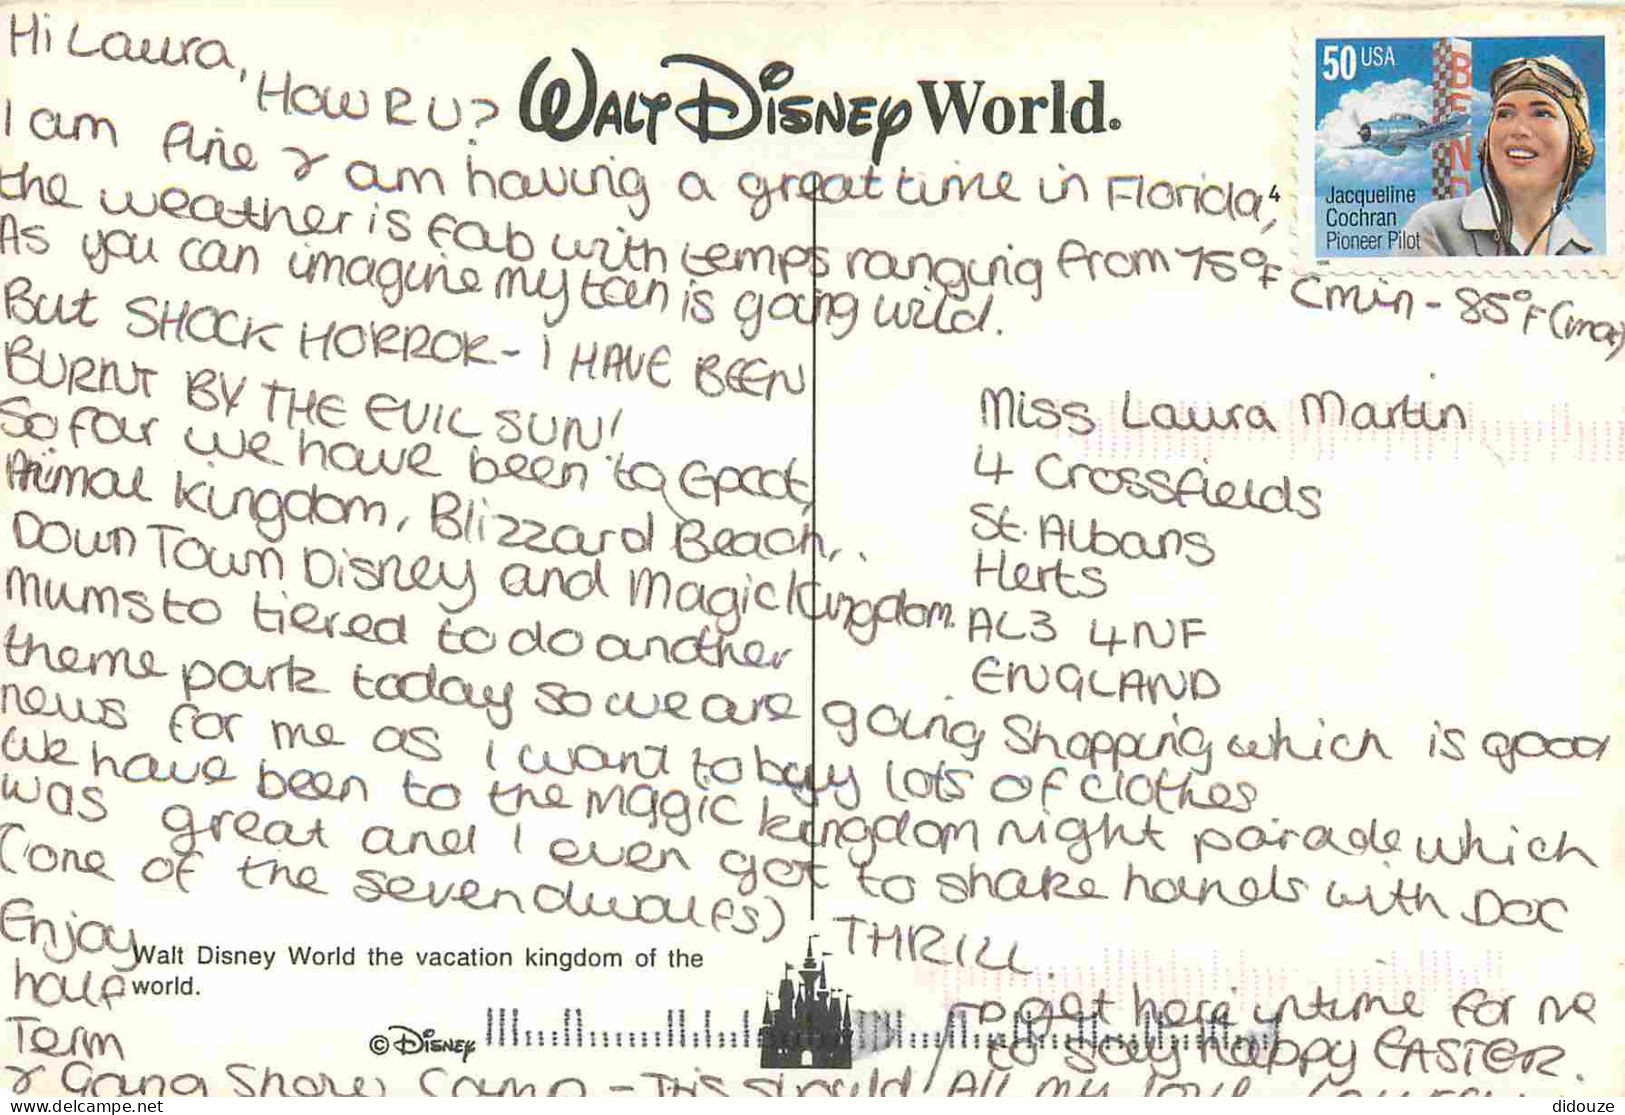 Hi Laura,
HOW R U?
I am fine & am having a great time in Florida,
the weather is fab with temps ranging from 75°F (min - 85°F (max)
As you can imagine my tan is going wild.
But SHOCK HORROR - I HAVE BEEN
BURNT BY THE EVIL SUN!
So far we have been to Epcot,
Animal Kingdom, Blizzard Beach,
DOWN TOWN Disney and Magic Kingdom.
Mums to tiered to do another
theme park today so we are going shopping which is good
news for me as I want to buy lots of clothes
We have been to the Magic Kingdom night parade which
was great and I even got to shake hands with Doc
(one of the seven dwarfs) THRILL.
Enjoy
half
Term
& Gang Show Camp - This should
to get here in time for me
to say happy EASTER.
All my love
WALT DISNEY World.
50 USA
BEND
Jacqueline
Cochran
Pioneer Pilot
4
Miss Laura Martin
4 Crossfields
St. Albans
Herts
AL3 4NF
ENGLAND
Walt Disney World the vacation kingdom of the
world.
© DISNEY
delcampe.net
didouze